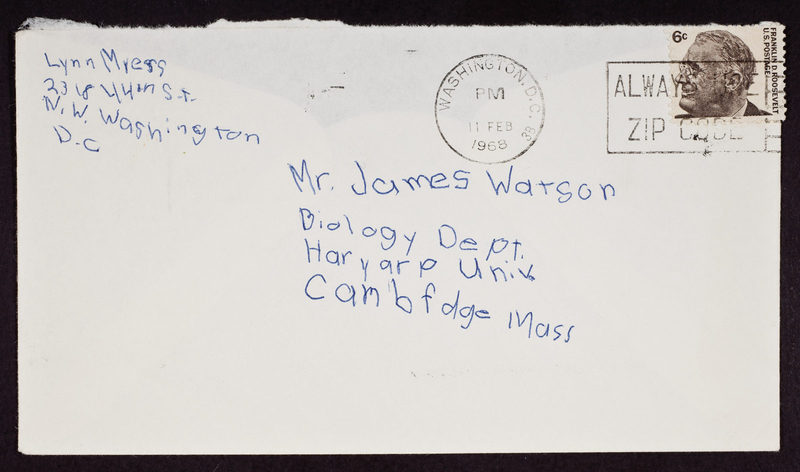 Lynn Myers
2318 44th St.
N.W. Washington
D.C
WASHINGTON, D.C. 38
PM
11 FEB
1968
ALWAYS USE
ZIP CODE
6c
FRANKLIN D. ROOSEVELT
U.S. POSTAGE
Mr. James Watson
Biology Dept.
Haryarp Univ.
Cambfdge Mass